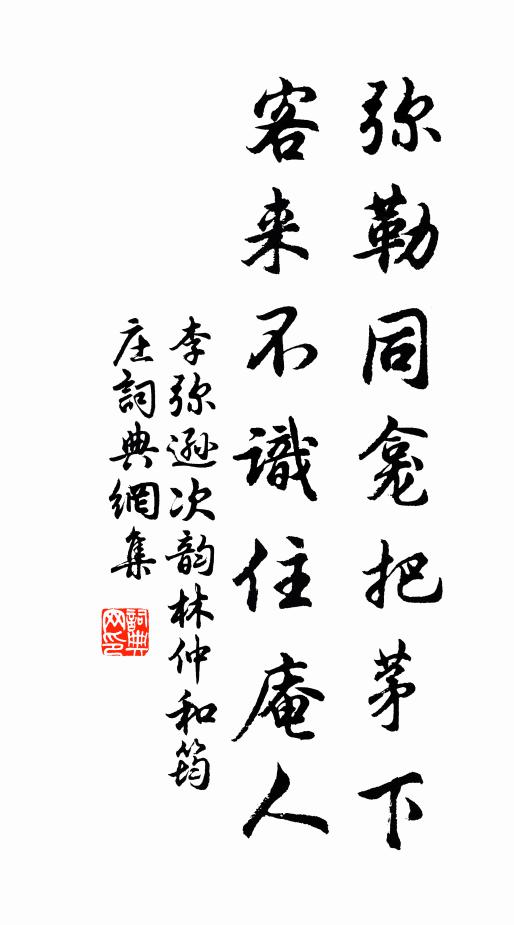 弥勒同龛把茅下
客来不識住庵人
李弥遜次韵林仲和筠
庄詞典網集
詞典网印